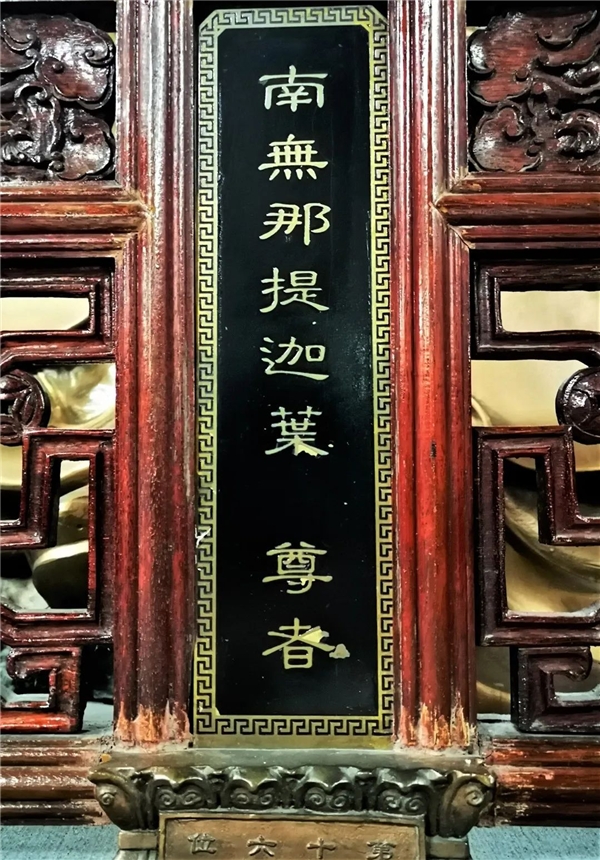 南無那提迦葉 尊者
第十六位